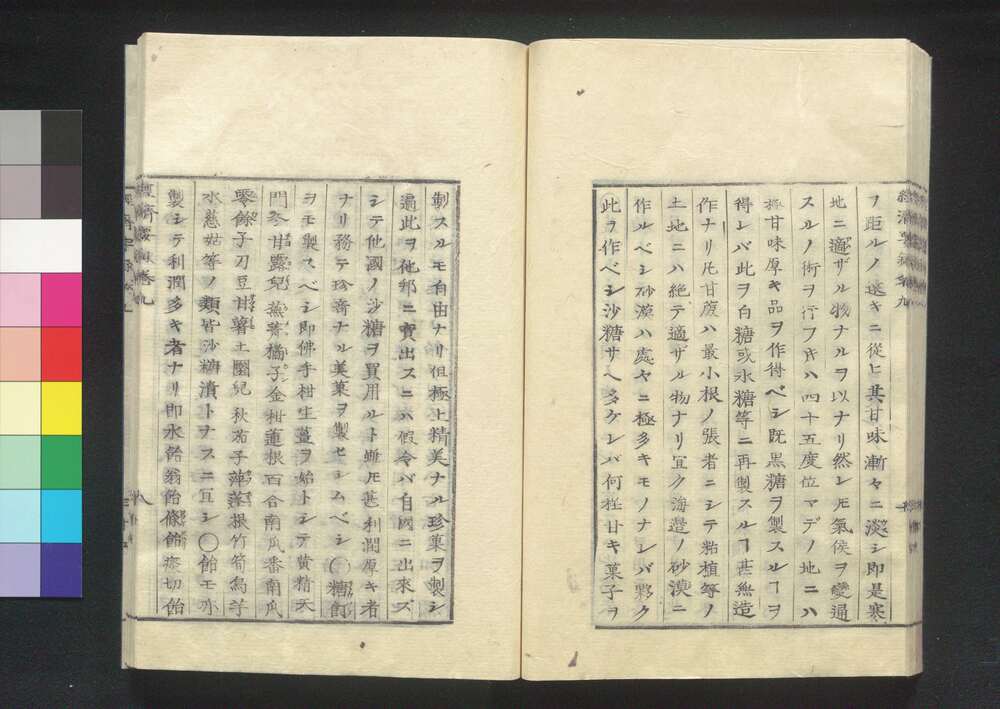 ヲ距ルノ遠キニ從ヒ其甘味漸々ニ淡シ即是寒
地ニ適ザル物ナルヲ以ナリ然レモ氣侯ヲ變通
スルノ術ヲ行フ片ハ四十五度位マデノ地ニハ
極甘味厚キ品ヲ作得ベシ既黒糖ヲ製スルヿヲ
得レバ此ヲ白糖或氷糖等ニ再製スルヿ甚無造
作ナリ凡甘蔗ハ最小根ノ張者ニシテ粘植等ノ
土地ニハ絶テ適ザル物ナリ宜ク海邉ノ砂漠ニ
作ルベシ砂漠ハ處々ニ極多キモノナレバ夥ク
此ヲ作ベシ沙糖サヘ多ケレバ何程甘キ菓子ヲ
製スルモ自由ナリ但極上精美ナル珍菓ヲ製シ
遍此ヲ他邦ニ賣出スニハ假令バ自國ニ出來ズ
シテ他國ノ沙糖ヲ買用ルト雖モ甚利潤厚キ者
ナリ務テ珍奇ナル美菓ヲ製セシムベシ○糖
ヲモ製スベシ即佛手柑生薑ヲ始トシテ黄精天
門冬甘露兒 橘子金柑蓮根百合南瓜番南瓜
零餘子刀豆甘薯土圞兒秋茄子 根竹筍烏芋
水慈姑等ノ類皆沙糖漬トナスニ宜シ○飴モ亦
製シテ利潤多キ者ナリ即水飴翁飴 飴 切飴